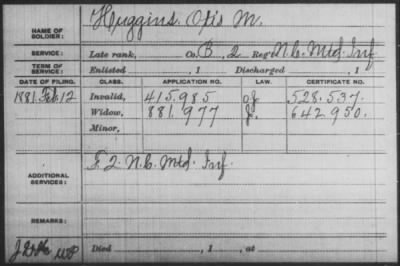 NAME OF SOLDIER: Huggins, Otis M.
SERVICE: Late rank, Co. B, 2 Reg't N.C. Mtd. Inf.
TERM OF SERVICE: Enlisted , 1 Discharged , 1
DATE OF FILING. CLASS. APPLICATION NO. LAW. CERTIFICATE NO.
1881 Feb 12 Invalid, 415.985 528.537.
Widow, 881.977 642.950.
Minor,
ADDITIONAL SERVICES: F. 2. N.C. Mtd. Inf.
REMARKS:
Died , 1 , at